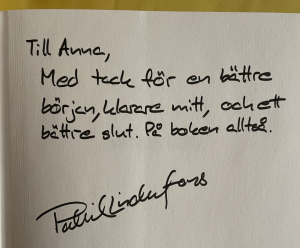 Till Anna,
Med tack för en bättre
början, klarare mitt, och ett
bättre slut. På boken alltså.